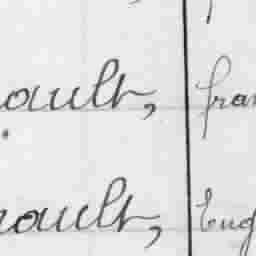 ault, fran
ault, Eug